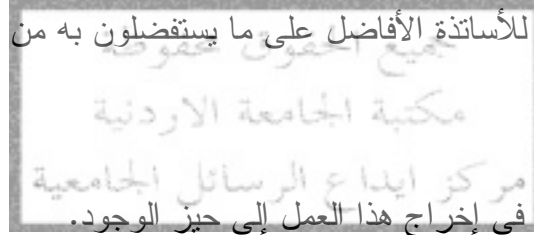 للأساتذة الأفاضل على ما يستفضلون به من
جميع الحقوق محفوظة
مكتبة الجامعة الاردنية
مركز ايداع الرسائل الجامعية
في إخراج هذا العمل إلى حيز الوجود.